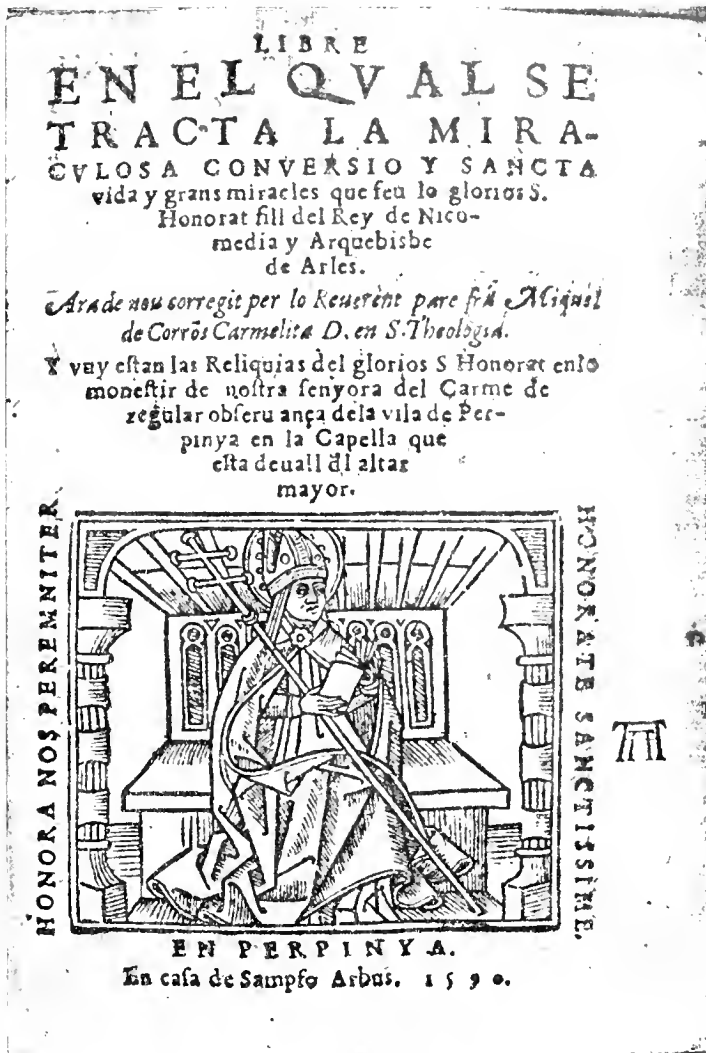 LIBRE
EN EL QVAL SE
TRACTA LA MIRA-
CVLOSA CONVERSIO Y SANCTA
vida y grans miracles que feu lo glorios S.
Honorat fill del Rey de Nico-
media y Arquebisbe
de Arles.
Ara de nou corregit per lo Reuerēnt pare fra Miquel
de Corrōs Carmelita D. en S. Theologia.
Y vuy eſtan las Reliquias del glorios S Honorat enlo
moneſtir de noſtra ſenyora del Carme de
regular obſeru ança dela vila de Per-
pinya en la Capella que
eſta deuall dl altar
mayor.
HONORA NOS PEREMNITER
HONORATE SANCTISSIME.
EN PERPINYA.
En caſa de Sampſo Arbus. 1590.